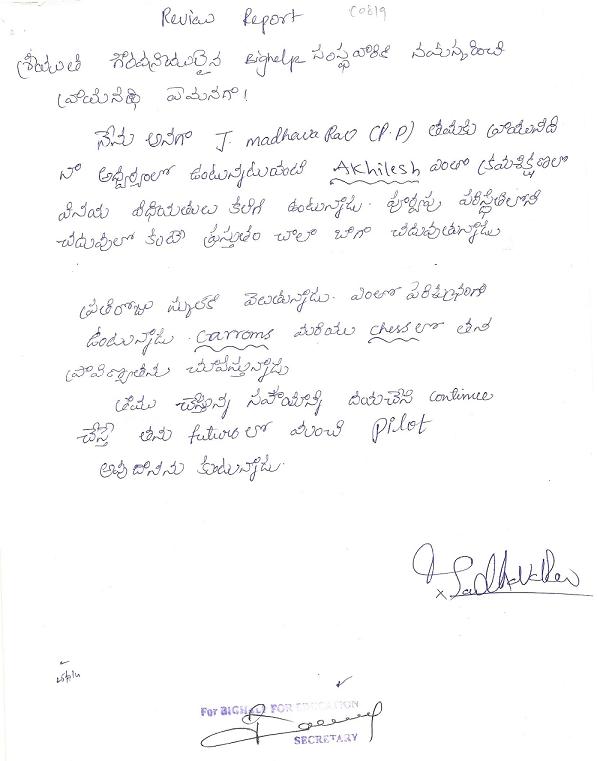 Review Report C0819
శ్రీయుత గౌరవనీయులైన Bighelp సంస్థవారికి నమస్కరించి
వ్రాయునది ఏమనగా!
నేను అనగా J. madhava Rao (P.P) తమకు వ్రాయునది
నా ఆధ్వర్యంలో ఉంటున్నటువంటి Akhilesh ఎంతో క్రమశిక్షణతో
వినయ విధేయతలు కలిగి ఉంటున్నాడు. పూర్వపు పరిస్థితిలోని
చదువులో కంటె ప్రస్తుతం చాలా బాగా చదువుతున్నాడు
ప్రతిరోజు స్కూలుకి వెలుతున్నాడు. ఎంతో పరిశుభ్రంగా
ఉంటున్నాడు. Carroms మరియు chess లో తన
ప్రావిణ్యతను చూపిస్తున్నాడు
తమ చేస్తున్న సహాయాన్ని దయచేసి continue
చేస్తే తను future లో మంచి pilot
అవుదామను కుంటున్నాడు.
For BIGHELP FOR EDUCATION
SECRETARY